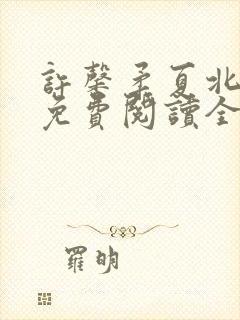 許馨柔夏北
免費閱讀全
羅明